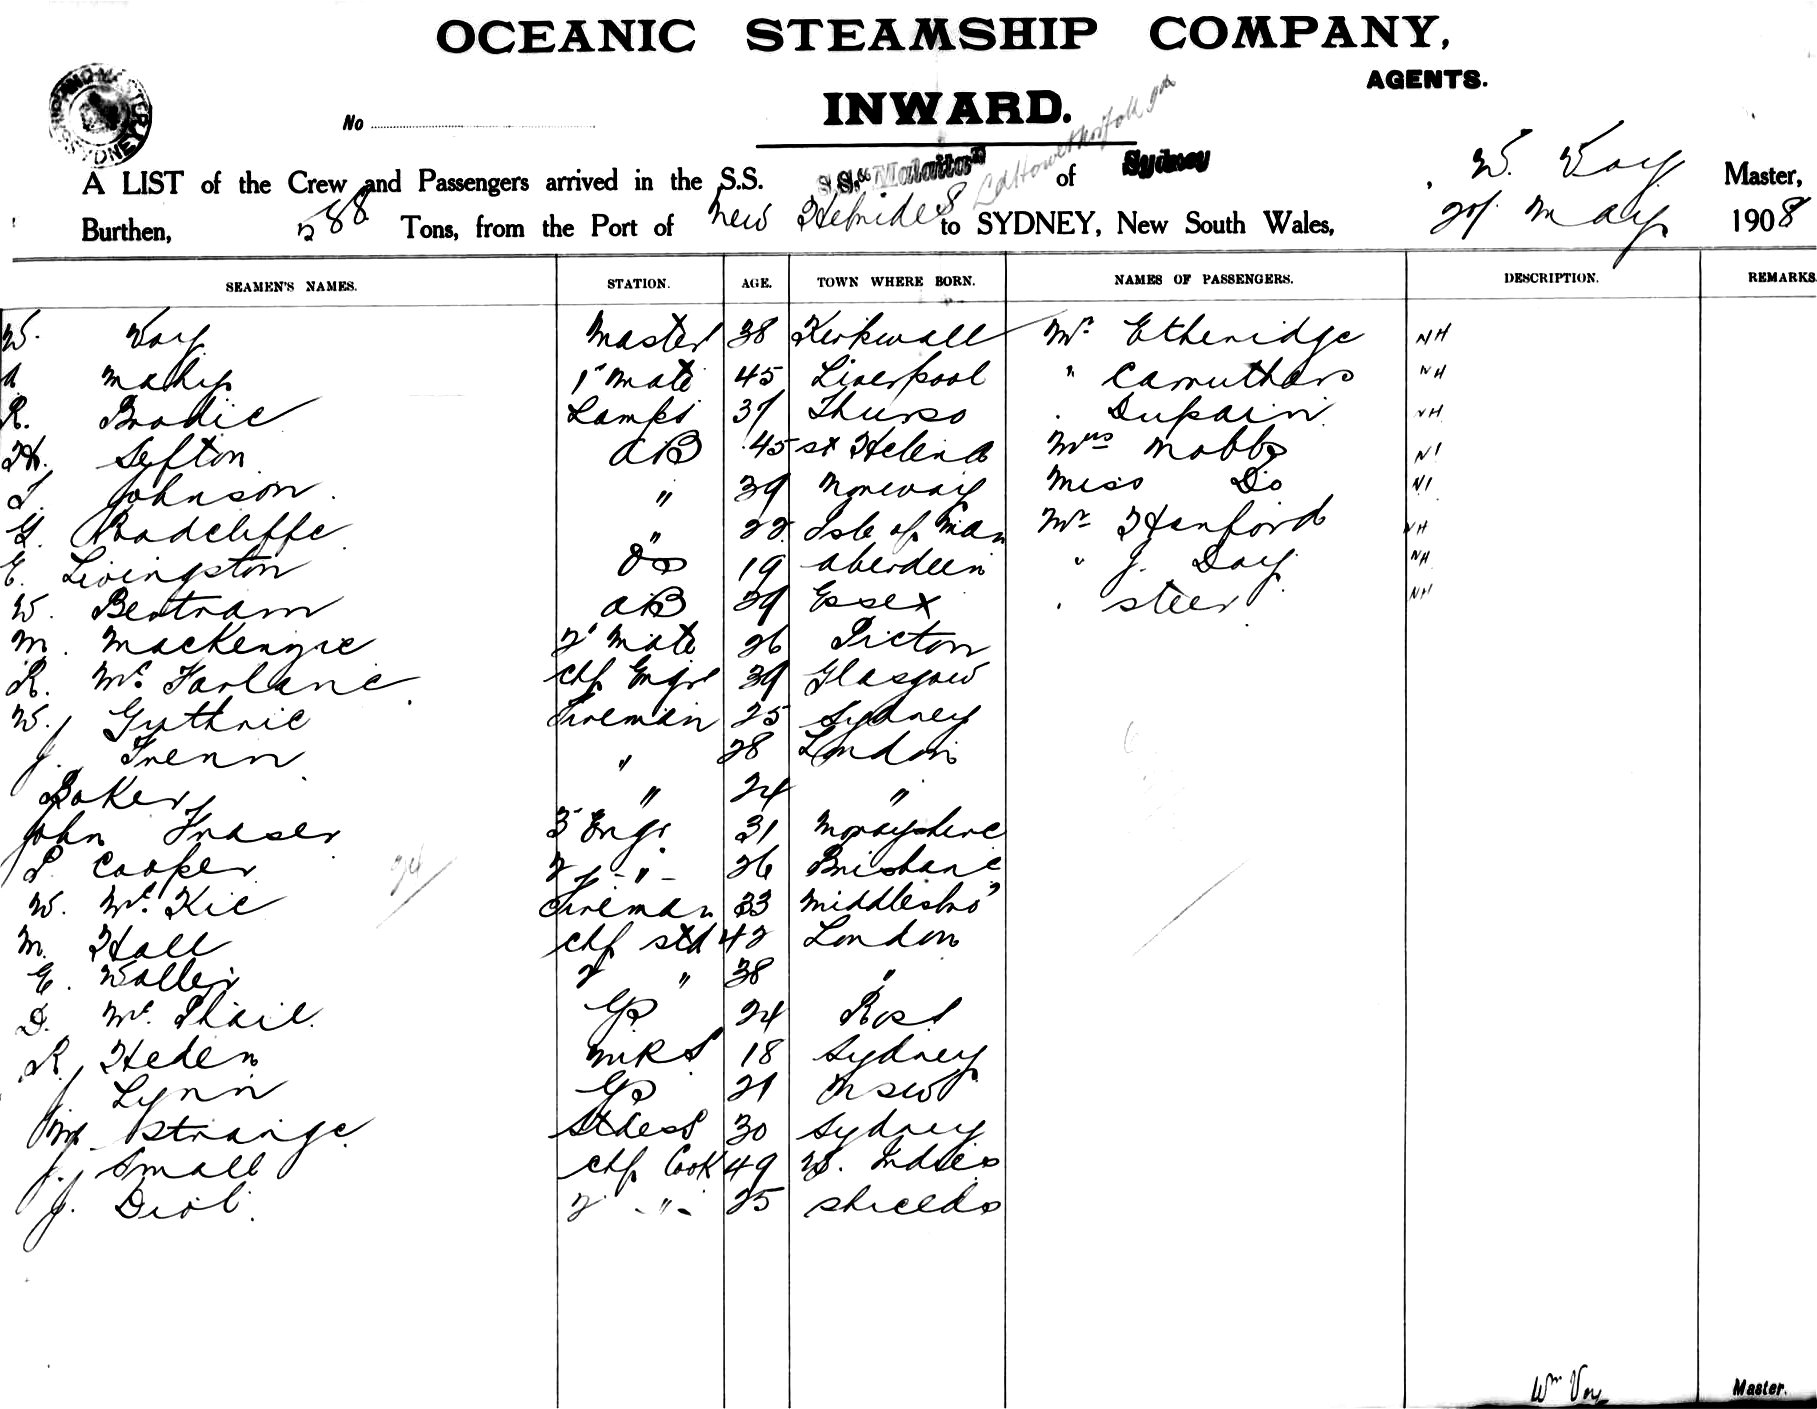 OCEANIC STEAMSHIP COMPANY,
AGENTS.
INWARD.
No
A LIST of the Crew and Passengers arrived in the S.S. S.S. "Malaita" of Sydney W. Voy Master,
Burthen, 588 Tons, from the Port of New Hebrides to SYDNEY, New South Wales, May 1908
SEAMEN'S NAMES. STATION. AGE. TOWN WHERE BORN. NAMES OF PASSENGERS. DESCRIPTION. REMARKS
W. Voy Master 38 Kirkwall Mr Etheridge NH
Mahy 1st Mate 45 Liverpool " Carruthers NH
R. Brodie Lamps 37 Thurso " Dupain NH
H. Sefton AB 45 St Helena Mrs Mobbs NI
T. Johnson " 39 Norway Miss Do NI
G. Radcliffe " 22 Isle of Man Mr Hanford NH
E. Livingston OS 19 Aberdeen " J. Day NH
W. Bertram AB 39 Essex " Steer NH
M. MacKenzie 2d Mate 26 Picton
R. McFarlane Chf Engr 39 Glasgow
W. Guthrie Fireman 25 Sydney
J. Trenn " 28 London
Baker " 24 "
John Fraser 3 Engr 31 Morayshire
L. Cooper 2 -"- 26 Brisbane
W. McKie Fireman 33 Middlesbro'
M. Hall Chf Std 42 London
E. Waller 2 " 38 "
D. McPhail GS 24 Ross
R. Heden MRS 18 Sydney
J. Lynn GS 21 NSW
Mrs Strange Stdess 30 Sydney
J. Small Chf Cook 49 W. Indies
J. 2 -"- 25 Shields
Wm Voy Master.